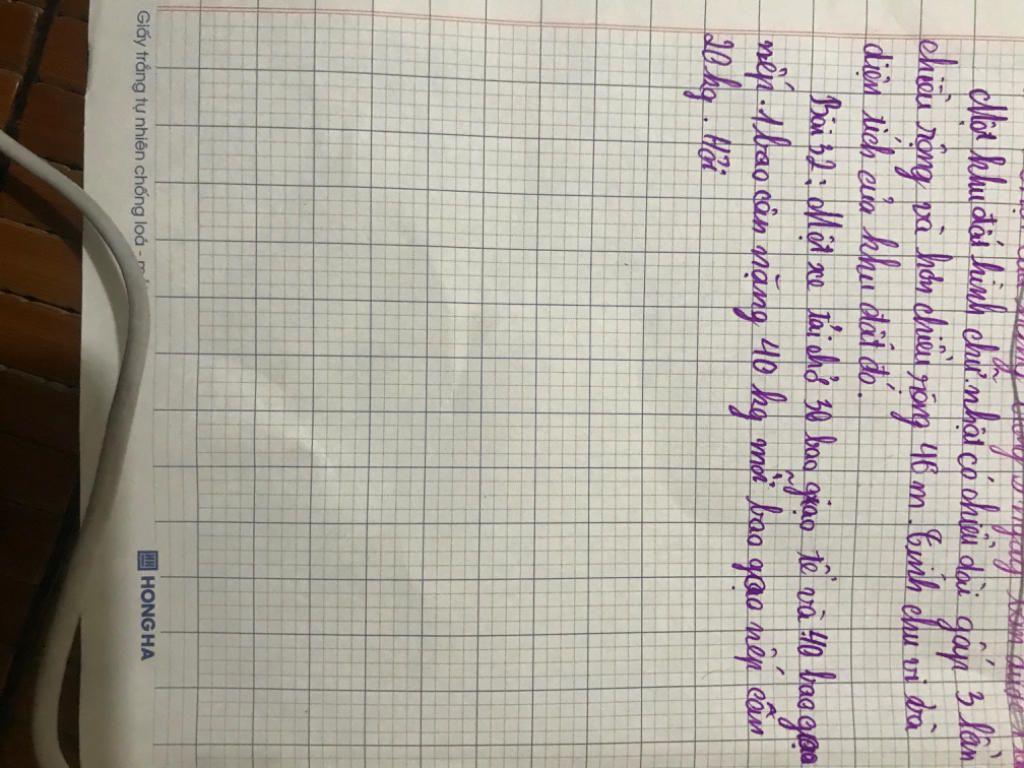 Một khu đất hình chữ nhật có chiều dài gấp 3 lần
chiều rộng và hơn chiều rộng 46 m. Tính chu vi và
diện tích của khu đất đó.
Bài 32: Một xe tải chở 30 bao gạo tẻ và 40 bao gạo
nếp. 1 bao cân nặng 40 kg mỗi bao gạo nếp cân
20 kg. Hỏi
Giấy trắng tự nhiên chống loá -
HONG HA